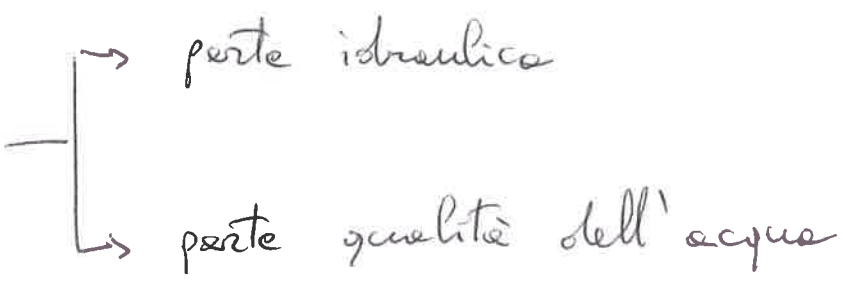 parte idraulica
parte qualità dell'acqua